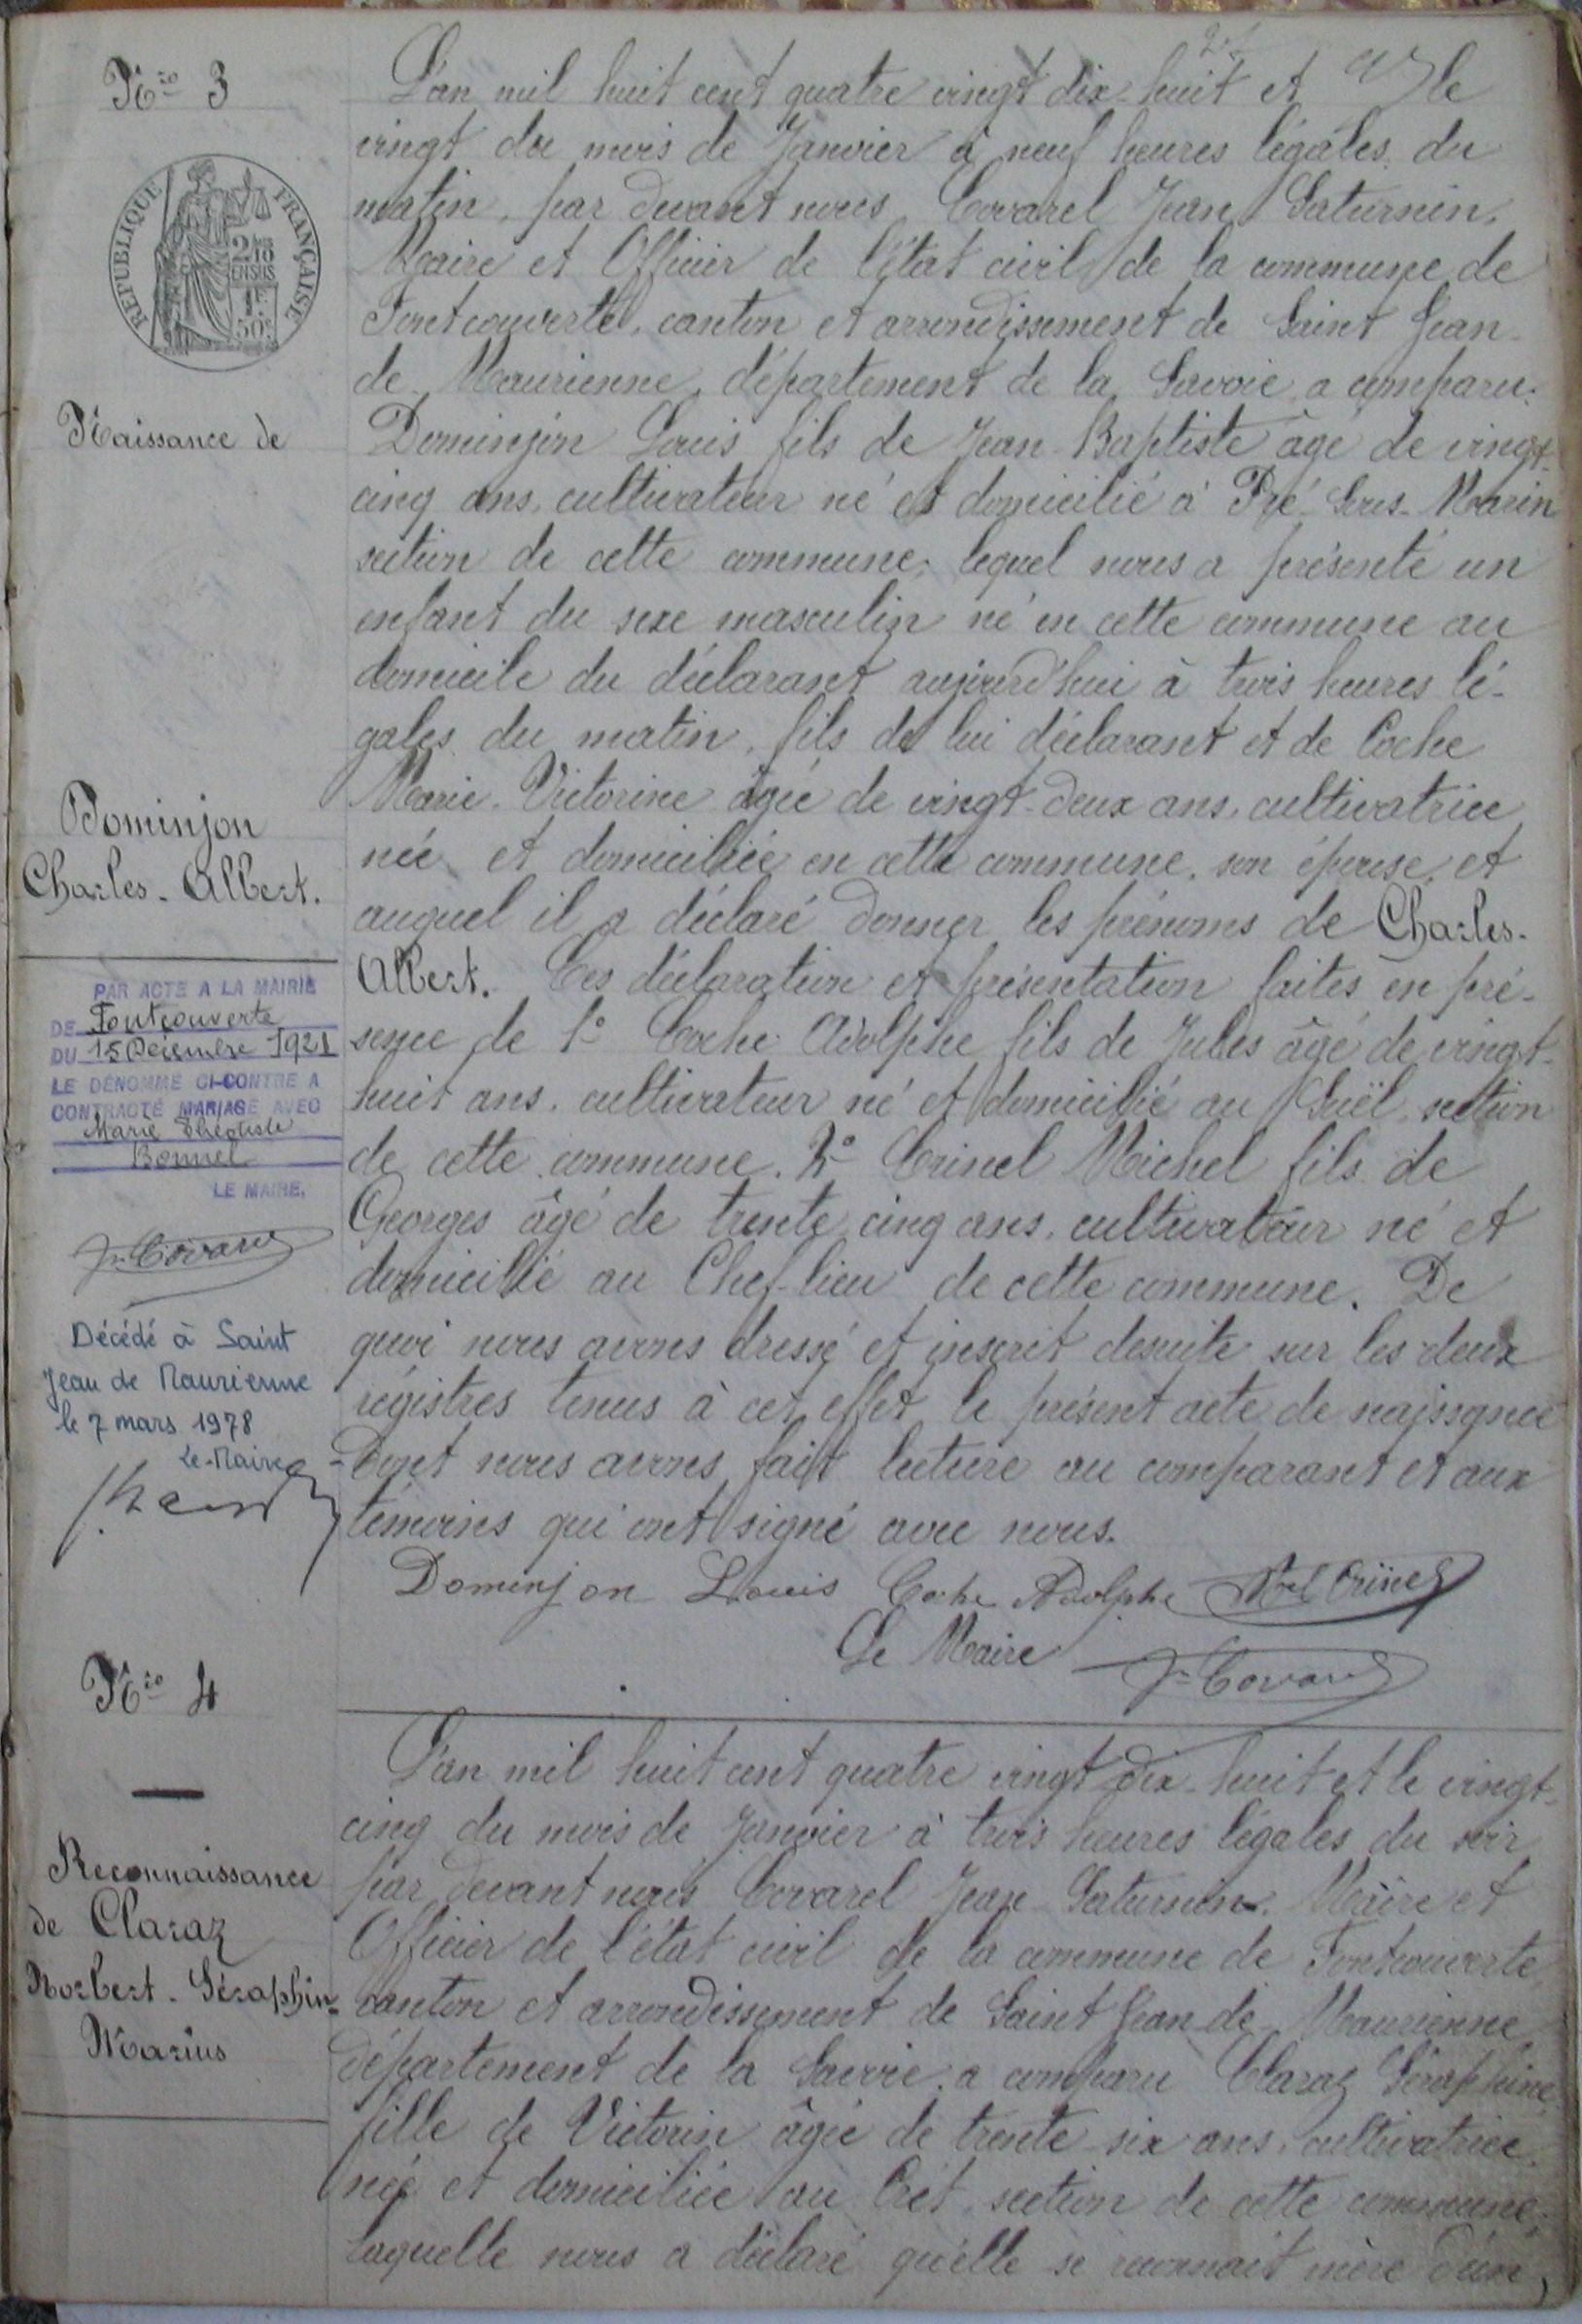 Nro 3
L'an mil huit cent quatre vingt dix-huit et le
vingt du mois de Janvier à neuf heures légales du
matin, par devant nous Covarel Jean Saturnin,
Maire et Officier de l'état civil de la commune de
Fontcouverte, canton et arrondissement de Saint Jean-
de-Maurienne, département de la Savoie, a comparu:
Dominjon Louis fils de Jean-Baptiste âgé de vingt-
cinq ans, cultivateur né et domicilié à Pré-Sous-Marin
section de cette commune; lequel nous a présenté un
enfant du sexe masculin né en cette commune au
domicile du déclarant aujourd'hui à trois heures lé-
gales du matin, fils de lui déclarant et de Coche
Marie-Victorine âgée de vingt-deux ans, cultivatrice
née et domiciliée en cette commune, son épouse, et
auquel il a déclaré donner les prénoms de Charles-
Albert. Ces déclaration et présentation faites en pré-
sence de 1° Coche Adolphe fils de Jules âgé de vingt-
huit ans, cultivateur né et domicilié au section
de cette commune. 2° Crinel Michel fils de
Georges âgé de trente cinq ans, cultivateur né et
domicilié au Chef-lieu de cette commune. De
quoi nous avons dressé et inscrit desuite sur les deux
régistres tenus à cet effet le présent acte de naissance
dont nous avons fait lecture au comparant et aux
témoins qui ont signé avec nous.
Dominjon Louis Coche Adolphe Crinel
Le Maire J. Covarel
RÉPUBLIQUE FRANÇAISE
Naissance de
Dominjon
Charles-Albert.
PAR ACTE A LA MAIRIE
DE Fontcouverte
DU 15 Décembre 1921
LE DÉNOMMÉ CI-CONTRE A
CONTRACTÉ MARIAGE AVEC
Marie Théotiste
Bonnel
LE MAIRE,
J. Covarel
Décédé à Saint
Jean de Maurienne
le 7 mars 1978
Le Maire
Nro 4
Reconnaissance
de Claraz
Norbert-Séraphin-
Marius
L'an mil huit cent quatre vingt dix-huit et le vingt-
cinq du mois de Janvier à trois heures légales du soir
par devant nous Covarel Jean-Saturnin, Maire et
Officier de l'état civil de la commune de Fontcouverte,
canton et arrondissement de Saint Jean-de-Maurienne,
département de la Savoie, a comparu Claraz Séraphine
fille de Victorin âgée de trente-six ans, cultivatrice,
née et domiciliée au Crêt, section de cette commune;
laquelle nous a déclaré qu'elle se reconnait mère d'un